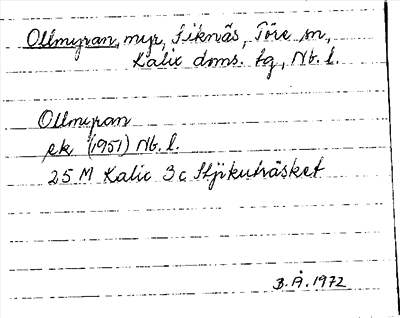 Ollmyran, myr, Siknäs, Töre sn,
Kalix doms. tg, Nb. l.
Ollmyran
ek (1951) Nb. l.
25 M Kalix 3 c Stjikuträsket
B.Å. 1972